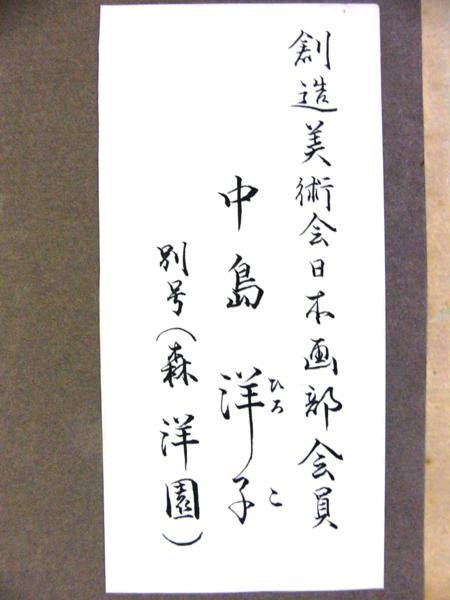 創造美術会日本画部会員
中島洋子
ひろこ
別号(森洋園)